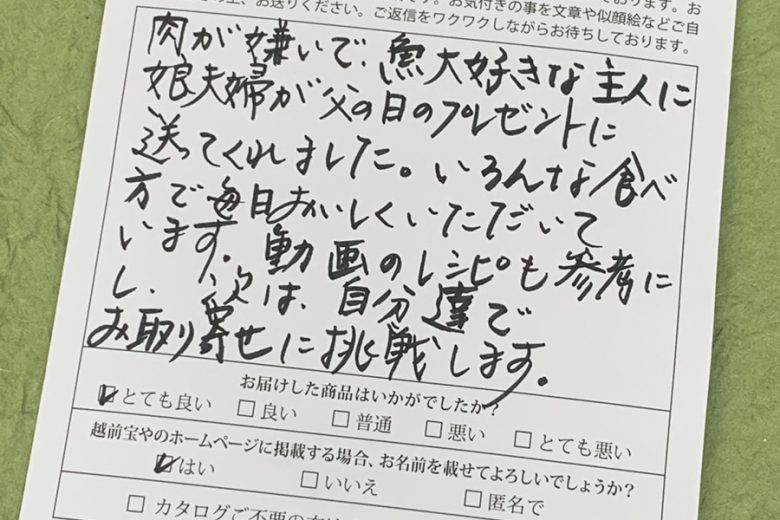 お気付きの事を文章や似顔絵などご自
お送りください。ご返信をワクワクしながらお待ちしております。
肉が嫌いで、魚大好きな主人に
娘夫婦が父の日のプレゼントに
送ってくれました。いろんな食べ
方で毎日おいしくいただいて
います。動画のレシピも参考に
し、次は、自分達で
お取り寄せに挑戦します。
お届けした商品はいかがでしたか?
☑とても良い □良い □普通 □悪い □とても悪い
越前宝やのホームページに掲載する場合、お名前を載せてよろしいでしょうか?
☑はい □いいえ □匿名で
□ カタログご不要の方は